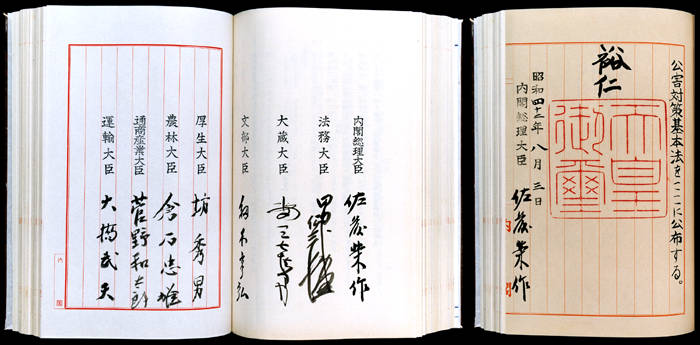 公害対策基本法をここに公布する。
裕仁
天皇御璽
昭和四十二年八月三日
内閣総理大臣 佐藤栄作
内閣総理大臣 佐藤栄作
法務大臣
大蔵大臣
文部大臣
厚生大臣 坊秀男
農林大臣 倉石忠雄
通商産業大臣 菅野和太郎
運輸大臣 大橋武夫